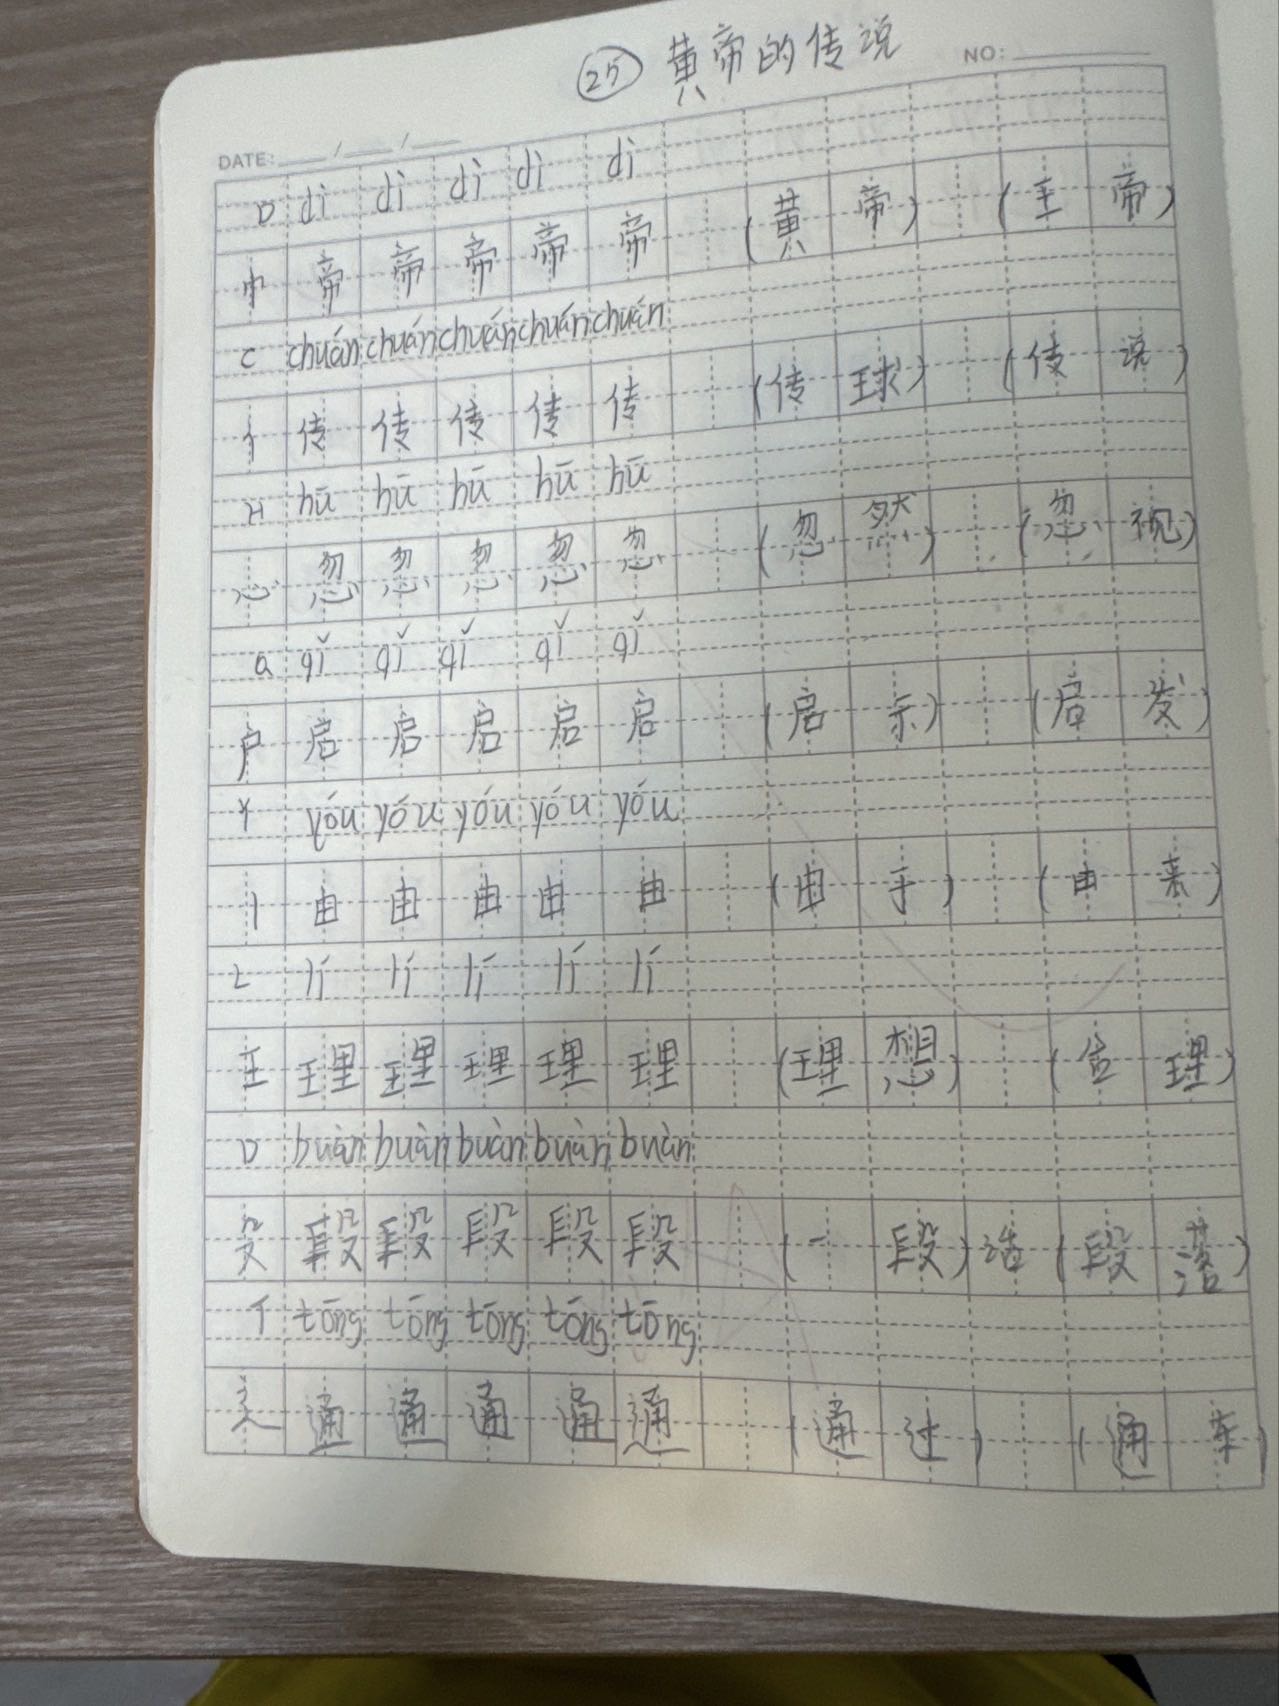 ㉕ 黄帝的传说
NO:
DATE: / /
D dì dì dì dì dì
巾 帝 帝 帝 帝 帝 (黄帝) (主帝)
C chuán chuán chuán chuán chuán
亻 传 传 传 传 传 (传球) (传说)
H hū hū hū hū hū
心 忽 忽 忽 忽 忽 (忽然) (忽视)
Q qǐ qǐ qǐ qǐ qǐ
户 启 启 启 启 启 (启示) (启发)
Y yóu yóu yóu yóu yóu
丨 由 由 由 由 由 (由于) (由来)
L lí lí lí lí lí
王 理 理 理 理 理 (理想) (合理)
D buàn buàn buàn buàn buàn
殳 段 段 段 段 段 (一段)话 (段落)
T tōng tōng tōng tōng tōng
辶 通 通 通 通 通 (通过) (通车)